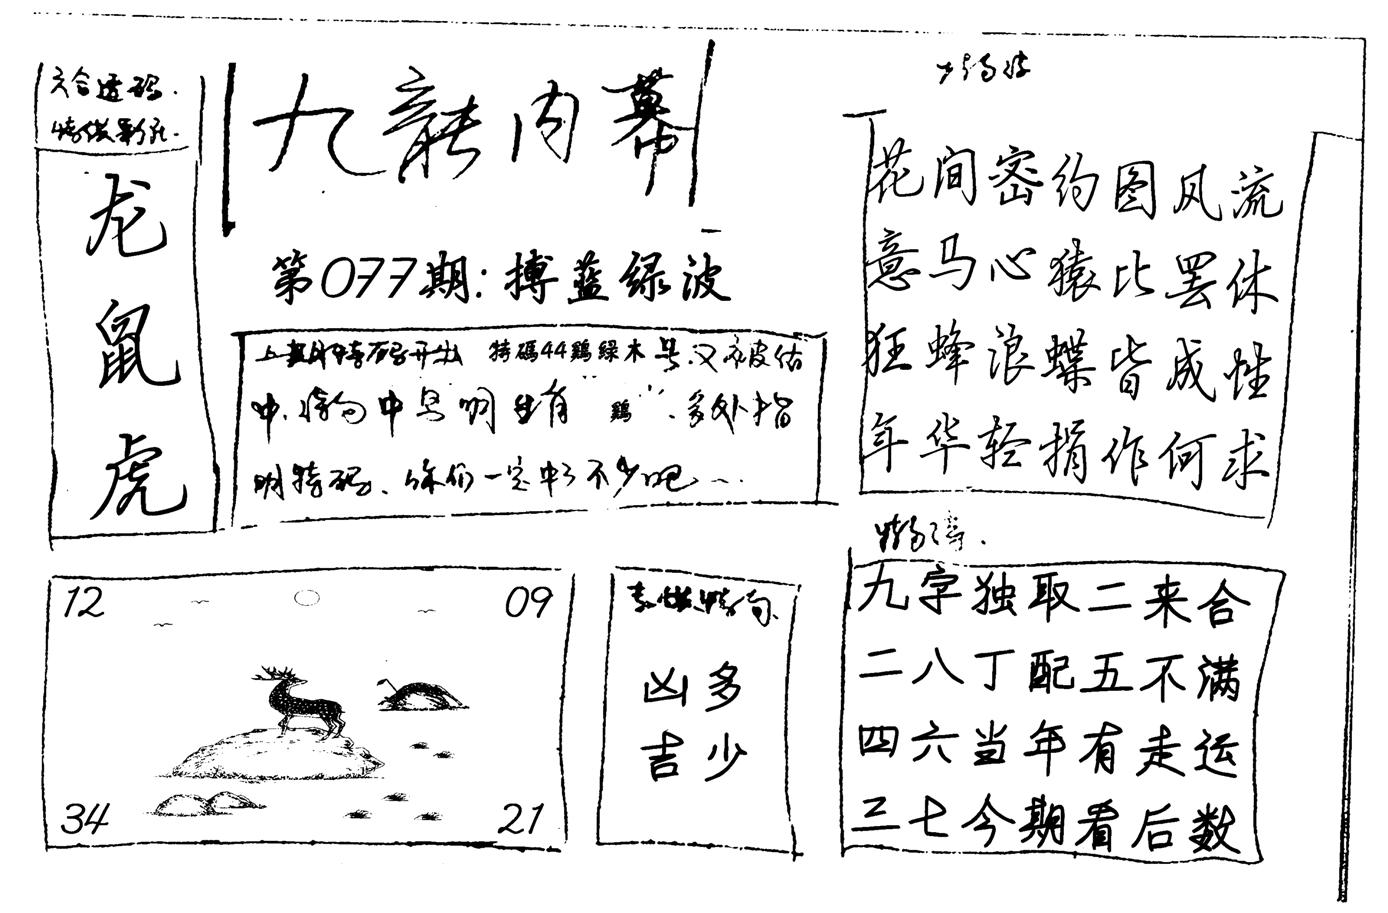 六合透码.
龙
鼠
虎
九龍内幕
第077期:搏蓝绿波
上期特码开出 特碼44鷄緑木号.又被估
中.特句中 明 有“鷄”.多处指
明特码.你们一定中了不少吧…
花间密约图风流
意马心猿比罢休
狂蜂浪蝶皆成性
年华轻捐作何求
九字独取二来合
二八丁配五不满
四六当年有走运
三七今期看后数
12
09
34
21
凶多
吉少